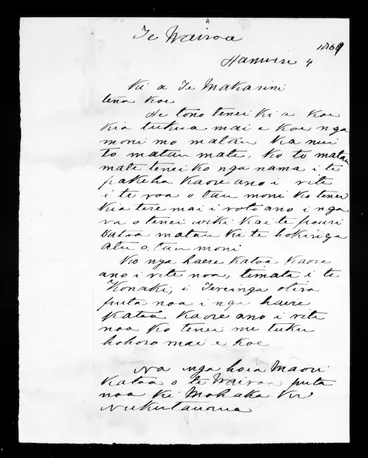 4
Te Wairoa
1869
Hanuere 4
Ki a Te Makarini
tena koe
He tono tenei ki a koe
kia tukua mai e koe nga
moni mo matau ka nui
to matau mate, ko to matau
mate tenei ko nga nama i te
pakeha kaore ano i rite
i te roa o tau moni ko tenei
kia tere mai i roto ano i nga
ra o tenei wiki kai te pouri
matau ki te hokinga
atu o tau moni
Ko nga haere katoa kaore
ano i rite noa, timata i te
Konaki, i Turanga
puta noa i nga haere
katoa kaore ano i rite
noa ko tenei me tuku
hohoro mai e koe
Na nga hoia Maori
katoa o Te Wairoa, puta
noa ki Mohaka ki
Nukutaurua